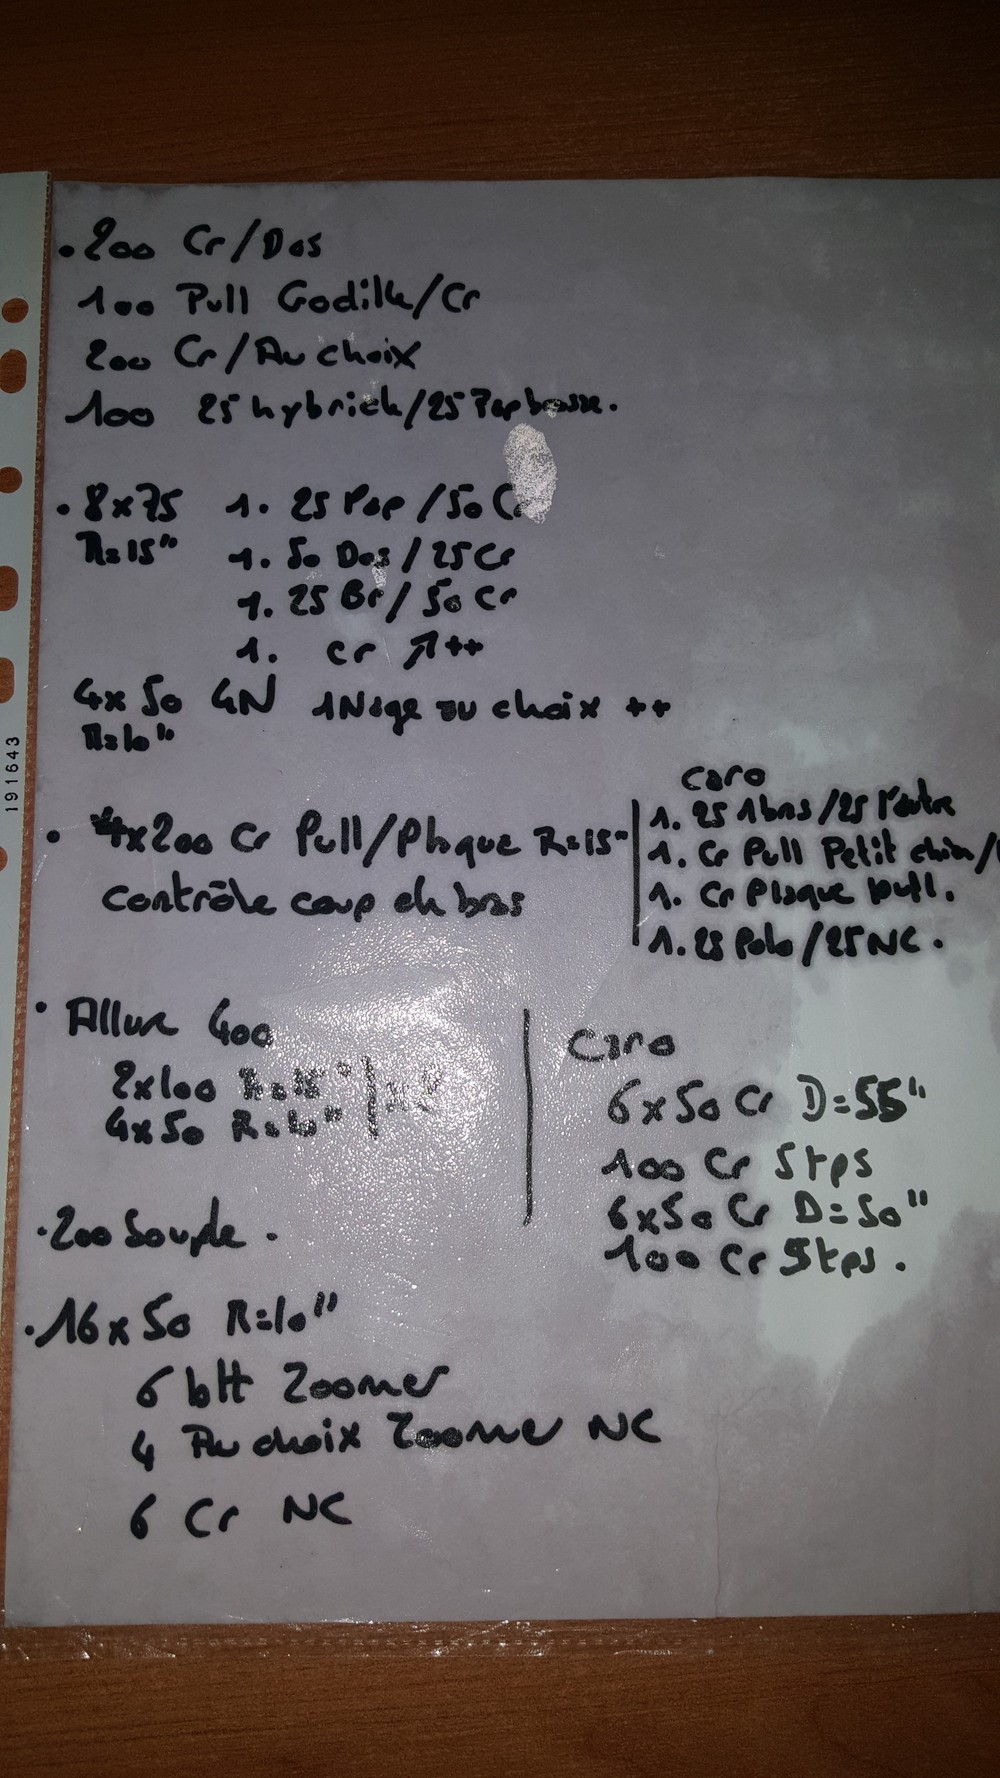 • 200 Cr/Dos
100 Pull Godille/Cr
200 Cr/Au choix
100 25 hybride/25 Pap brasse.
• 8x75 1. 25 Pap/50 Cr
R=15" 1. 50 Dos/25 Cr
1. 25 Br/50 Cr
1. Cr ↗++
4x50 4N 1 Nage au choix ++
R=10"
• 4x200 Cr Pull/Plaque R=15"
contrôle coup de bras
Caro
1. 25 1 bras/25 l'autre
1. Cr Pull Petit chien/
1. Cr Plaque pull.
1. 25 Polo/25 NC.
• Allure 400
2x100 R=15"
4x50 R=10"
Caro
6x50 Cr D=55"
100 Cr 5 tps
6x50 Cr D=50"
100 Cr 5 tps.
• 200 Souple.
• 16x50 R=10"
6 btt Zoomer
4 Au choix Zoomer NC
6 Cr NC
191643